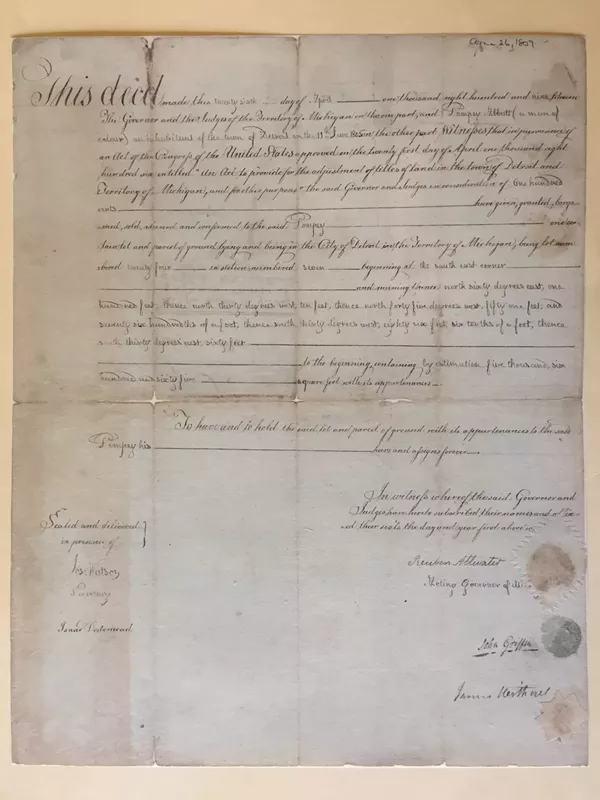 April 26, 1809
This deed made this twenty sixth day of April one thousand eight hundred and nine between
The Governor and the Judges of the Territory of Michigan on the one part, and Pompey Abbott (a man of
colour) an inhabitant of the town of Detroit on the 11th June 1805 on the other part Witnesses that in pursuance of
an Act of the Congress of the United States approved on the twenty first day of April one thousand eight
hundred six entitled "An Act to provide for the adjustment of titles of land in the town of Detroit and
Territory of Michigan, and for other purposes" the said Governor and Judges in consideration of One hundred
cents have given, granted, barga-
ined, sold, aliened and confirmed to the said Pompey one cer-
tain lot and parcel of ground lying and being in the City of Detroit in the Territory of Michigan; being lot num-
bered twenty four in section numbered seven beginning at the south east corner
and running thence north sixty degrees east, one
hundred feet, thence north thirty degrees west ten feet, thence north forty five degrees west, fifty one feet, and
seventy six hundredths of a foot, thence south thirty degrees west, eighty six feet, six tenths of a foot, thence
south thirty degrees east, sixty feet
to the beginning, containing by estimation five thousand, six
hundred and sixty five square feet with its appurtenances.
To have and to hold the said lot and parcel of ground with its appurtenances to the said
Pompey his heirs and assigns forever.
In witness whereof the said Governor and
Judges have hereto subscribed their names and affix-
ed their seals the day and year first above
Sealed and delivered
in presence of
Jos. Watson
Secretary
Reuben Attwater
Acting Governor of
John Griffin
James Witherell